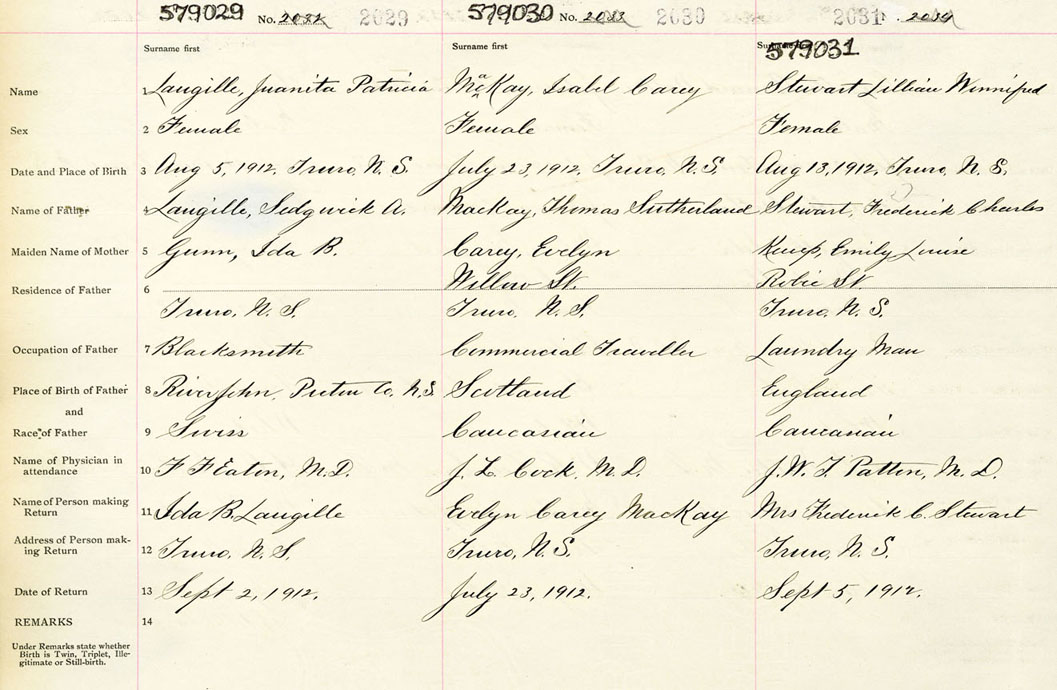 579029 No. 2032 2029 579030 No. 2033 2030 2031 2034
Surname first Surname first Surname first 579031
Name 1 Langille, Juanita Patricia MacKay, Isabel Carey Stewart Lillian Winnifred
Sex 2 Female Female Female
Date and Place of Birth 3 Aug 5, 1912, Truro, N. S. July 23, 1912, Truro, N. S. Aug 13, 1912, Truro, N. S.
Name of Father 4 Langille, Sedgwick A. MacKay, Thomas Sutherland Stewart, Frederick Charles
Maiden Name of Mother 5 Gunn, Ida B. Carey, Evelyn Kemp, Emily Louise
Willow St. Robie St.
Residence of Father 6
Truro, N. S. Truro, N. S. Truro, N. S.
Occupation of Father 7 Blacksmith Commercial Traveller Laundry Man
Place of Birth of Father 8 River John, Pictou Co. N.S. Scotland England
and
Race of Father 9 Swiss Caucasian Caucasian
Name of Physician in
attendance 10 F F Eaton, M.D. J. L. Cock, M.D. J. W. T. Patton, M. D.
Name of Person making
Return 11 Ida B. Langille Evelyn Carey MacKay Mrs Frederick C. Stewart
Address of Person mak-
ing Return 12 Truro, N. S. Truro, N. S. Truro, N. S.
Date of Return 13 Sept 2, 1912. July 23, 1912. Sept 5, 1912.
REMARKS 14
Under Remarks state whether
Birth is Twin, Triplet, Ille-
gitimate or Still-birth.